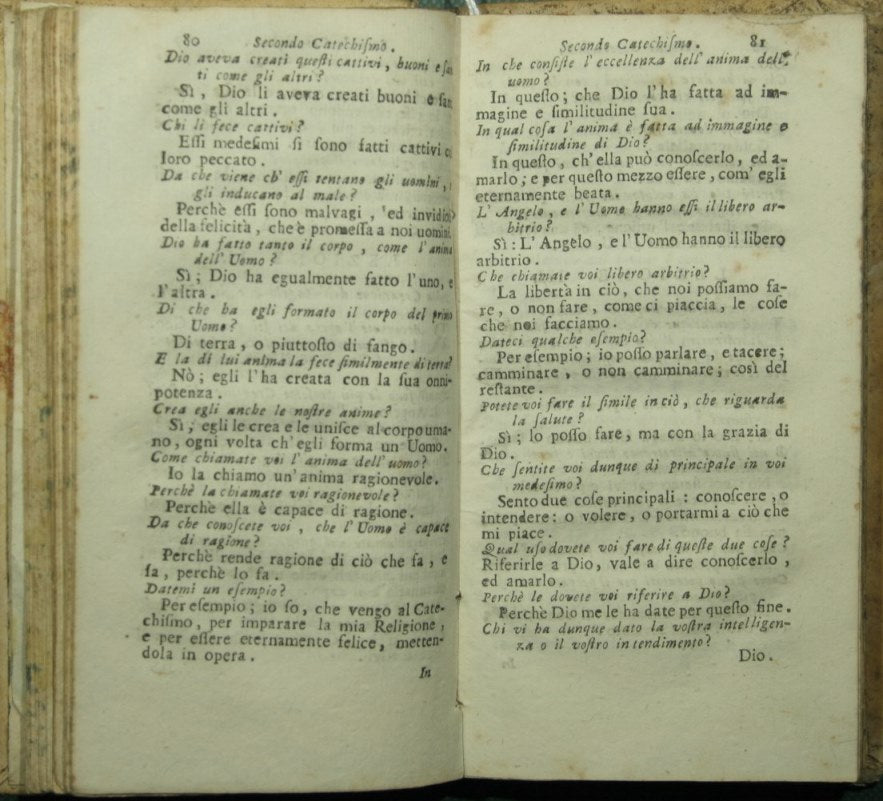 80 Secondo Catechiſmo.
Dio aveva creati queſti cattivi, buoni e ſan
ti come gli altri?
Sì, Dio li aveva creati buoni e ſan
come gli altri.
Chi li fece cattivi?
Eſſi medeſimi ſi ſono fatti cattivi c
loro peccato.
Da che viene ch' eſſi tentano gli uomini,
gli inducano al male?
Perchè eſſi ſono malvagi, ed invidio
della felicità, che è promeſſa a noi uomini.
Dio ha fatto tanto il corpo, come l'anima
dell' Uomo?
Sì; Dio ha egualmente fatto l'uno, e
l'altra.
Di che ha egli formato il corpo del primo
Uomo?
Di terra, o piuttoſto di fango.
E la di lui anima la fece ſimilmente di terra?
Nò; egli l'ha creata con la ſua onni-
potenza.
Crea egli anche le noſtre anime?
Sì, egli le crea e le uniſce al corpo uma-
no, ogni volta ch'egli forma un Uomo.
Come chiamate voi l'anima dell'uomo?
Io la chiamo un'anima ragionevole.
Perchè la chiamate voi ragionevole?
Perchè ella è capace di ragione.
Da che conoſcete voi, che l'Uomo è capace
di ragione?
Perchè rende ragione di ciò che fa, e
fa, perchè lo fa.
Datemi un eſempio?
Per eſempio; io ſo, che vengo al Cate-
chiſmo, per imparare la mia Religione,
e per eſſere eternamente felice, metten-
dola in opera.
In
Secondo Catechiſmo. 81
In che conſiſte l'eccellenza dell'anima dell'
uomo?
In queſto; che Dio l'ha fatta ad im-
magine e ſimilitudine ſua.
In qual coſa l'anima è fatta ad immagine e
ſimilitudine di Dio?
In queſto, ch'ella può conoſcerlo, ed a-
marlo; e per queſto mezzo eſſere, com'egli
eternamente beata.
L'Angelo, e l'Uomo hanno eſſi il libero ar-
bitrio?
Sì: L'Angelo, e l'Uomo hanno il libero
arbitrio.
Che chiamate voi libero arbitrio?
La libertà in ciò, che noi poſſiamo fa-
re, o non fare, come ci piaccia, le coſe
che noi facciamo.
Dateci qualche eſempio?
Per eſempio; io poſſo parlare, e tacere;
camminare, o non camminare; così del
reſtante.
Potete voi fare il ſimile in ciò, che riguarda
la ſalute?
Sì; lo poſſo fare, ma con la grazia di
Dio.
Che ſentite voi dunque di principale in voi
medeſimo?
Sento due coſe principali: conoſcere, o
intendere: o volere, o portarmi a ciò che
mi piace.
Qual uſo dovete voi fare di queſte due coſe?
Riferirle a Dio, vale a dire conoſcerlo,
ed amarlo.
Perchè le dovete voi riferire a Dio?
Perchè Dio me le ha date per queſto fine.
Chi vi ha dunque dato la voſtra intelligen-
za o il voſtro intendimento?
Dio.